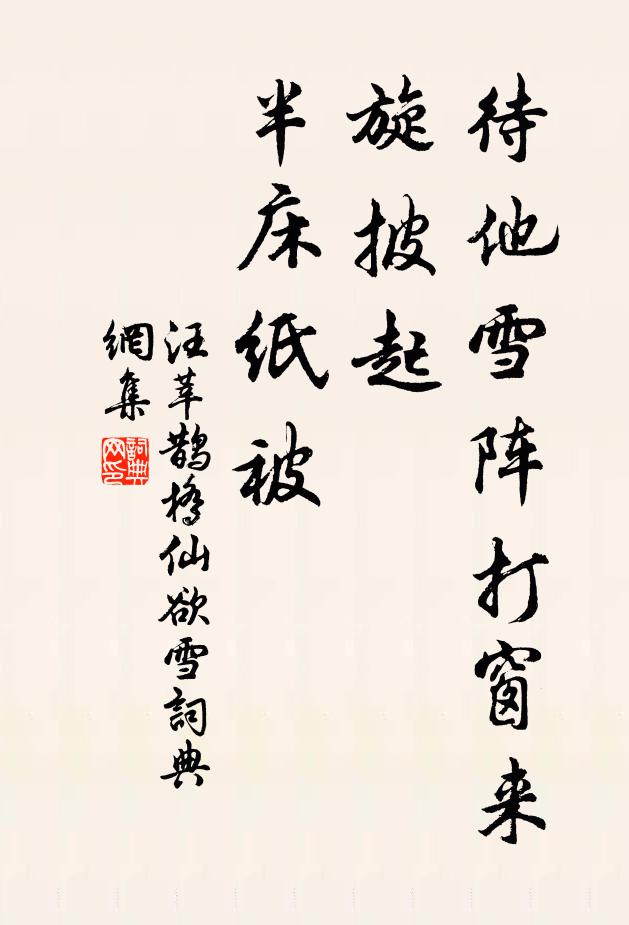 待他雪阵打窗来
旋披起
半床纸被
汪莘鹊桥仙欲雪詞典
網集
詞典
网印